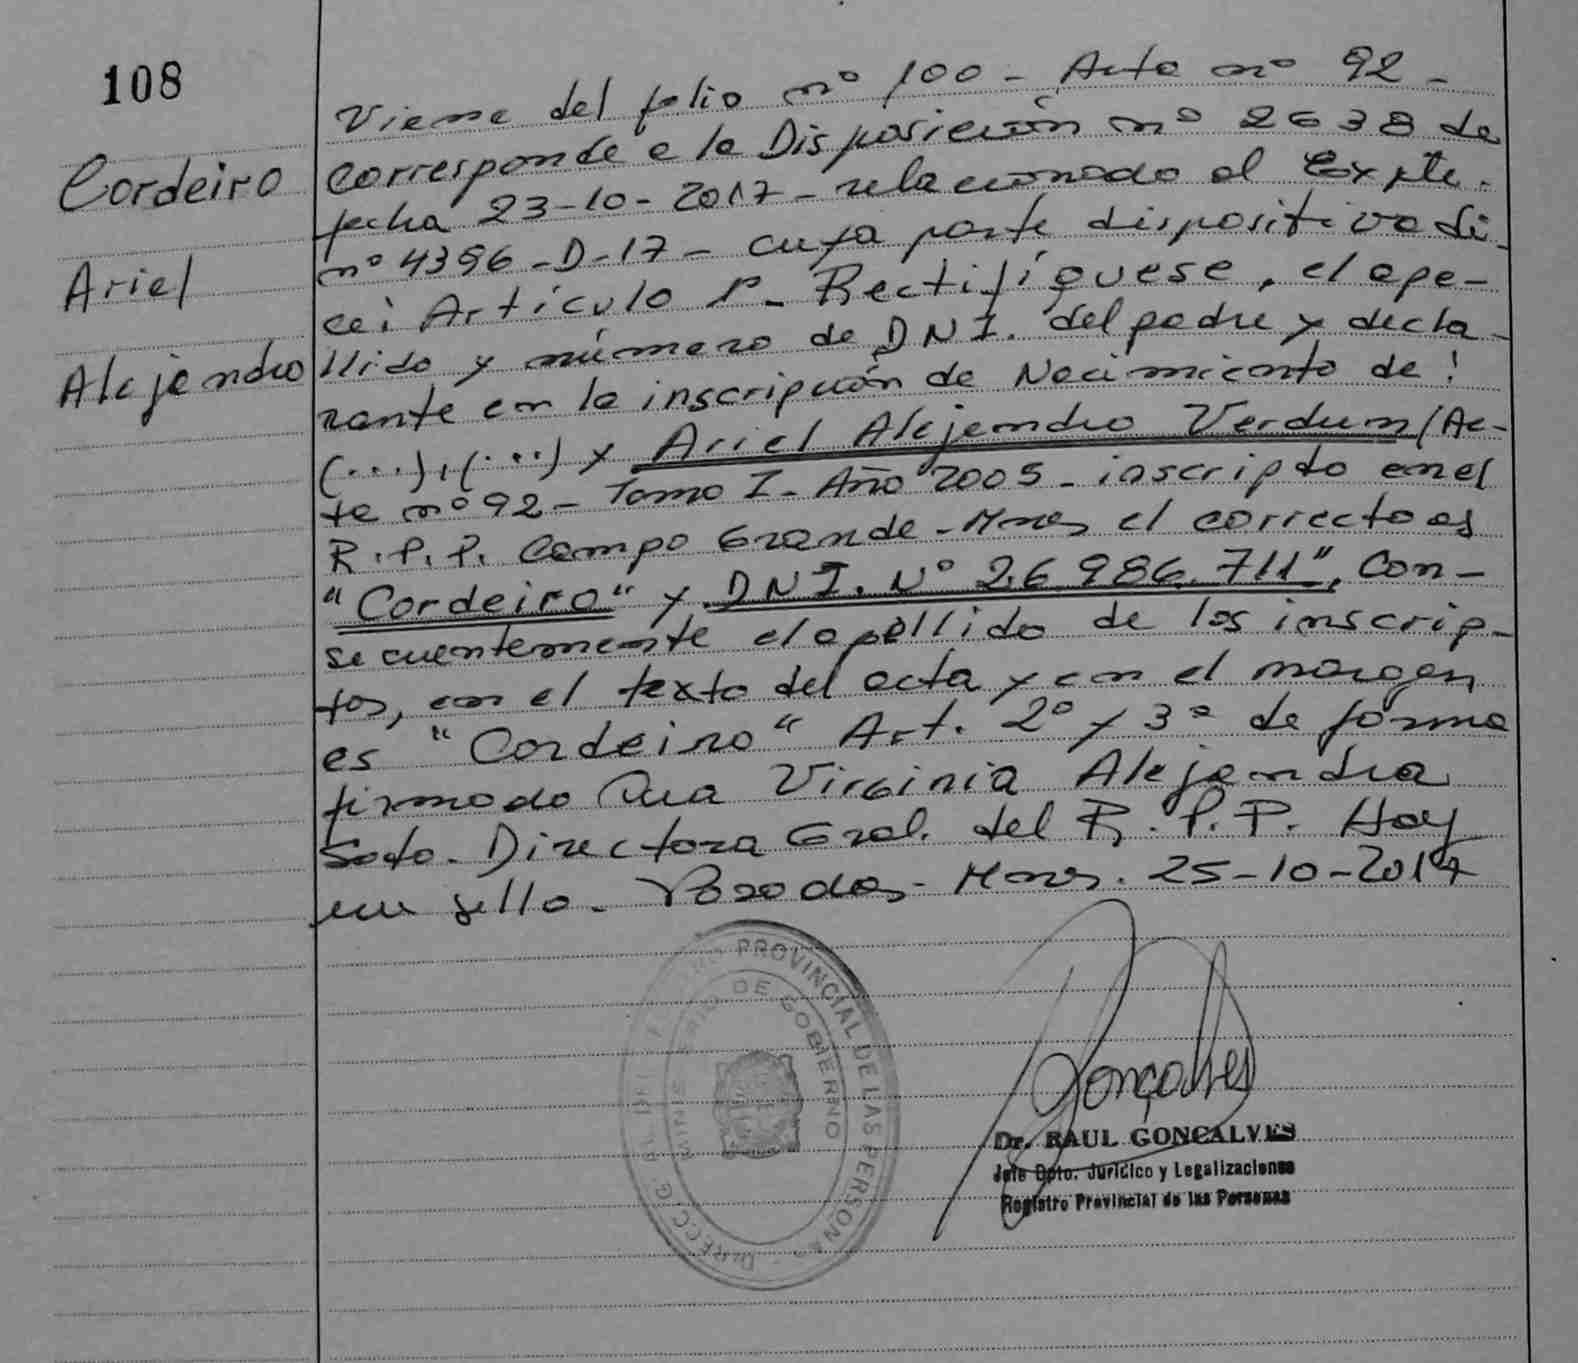 108
Cordeiro
Ariel
Alejandro
Viene del folio nº 100 - Acta nº 92 -
Corresponde a la Disposición nº 2638 de
fecha 23-10-2017 - relacionado al Expte.
nº 4396-D-17 - cuya parte dispositiva di-
ce: Artículo 1º- Rectifíquese, el ape-
llido y número de DNI. del padre y decla-
rante en la inscripción de Nacimiento de:
(...), (...) y Ariel Alejandro Verdum (Ac-
ta nº 92 - Tomo I - Año 2005 - inscripto en el
R.P.P. Campo Grande - Mnes el correcto es
"Cordeiro" y DNI. Nº 26.986.711", Con-
secuentemente el apellido de los inscrip-
tos, en el texto del acta y en el margen
es "Cordeiro" Art. 2º y 3º de forma
firmado Dra Virginia Alejandra
Soto. Directora Gral. del R.P.P. Hay
un sello. Posadas - Mnes. 25-10-2017
DIRECC. G. DEL PROVINCIAL DE LAS PERSONAS
MINISTERIO DE GOBIERNO
Gonçalves
Dr. RAUL GONCALVES
Jefe Dpto. Jurídico y Legalizaciones
Registro Provincial de las Personas